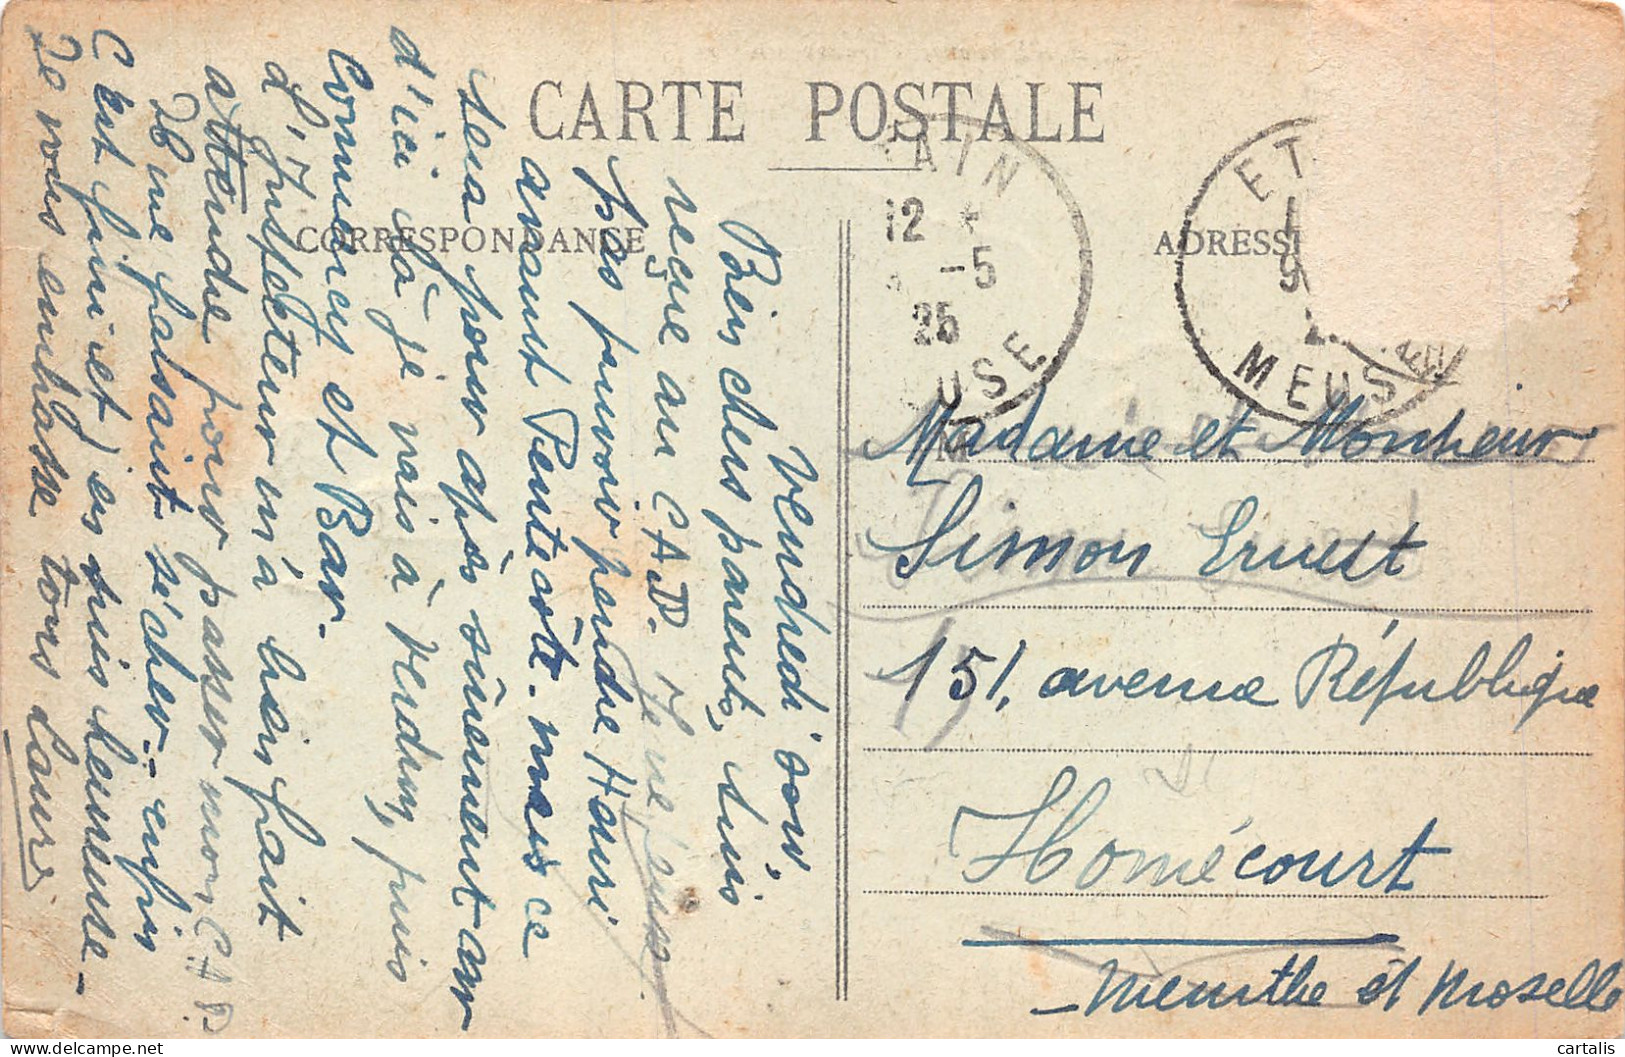 CARTE POSTALE
CORRESPONDANCE
ADRESS
AIN
12 *
-5
25
USE
ET
MEUSE
Vendredi soir,
Bien chers parents, suis
reçue au C.A.P. Je ne peux
pas pouvoir prendre Henri
avant Pentecôte. mais ce
sera pour après sûrement car
d'ici là je vais à Verdun, puis
Commercy et Bar.
L'Inspecteur m'a bais fait
attendre pour passer mon C.A.P.
Il me faisait sécher. enfin
C'est fini et j'en suis heureuse -
Je vous embrasse tous Laure
Madame et Monsieur
Simon Ernest
151, avenue République
Homécourt
Meurthe et Moselle
cartalis